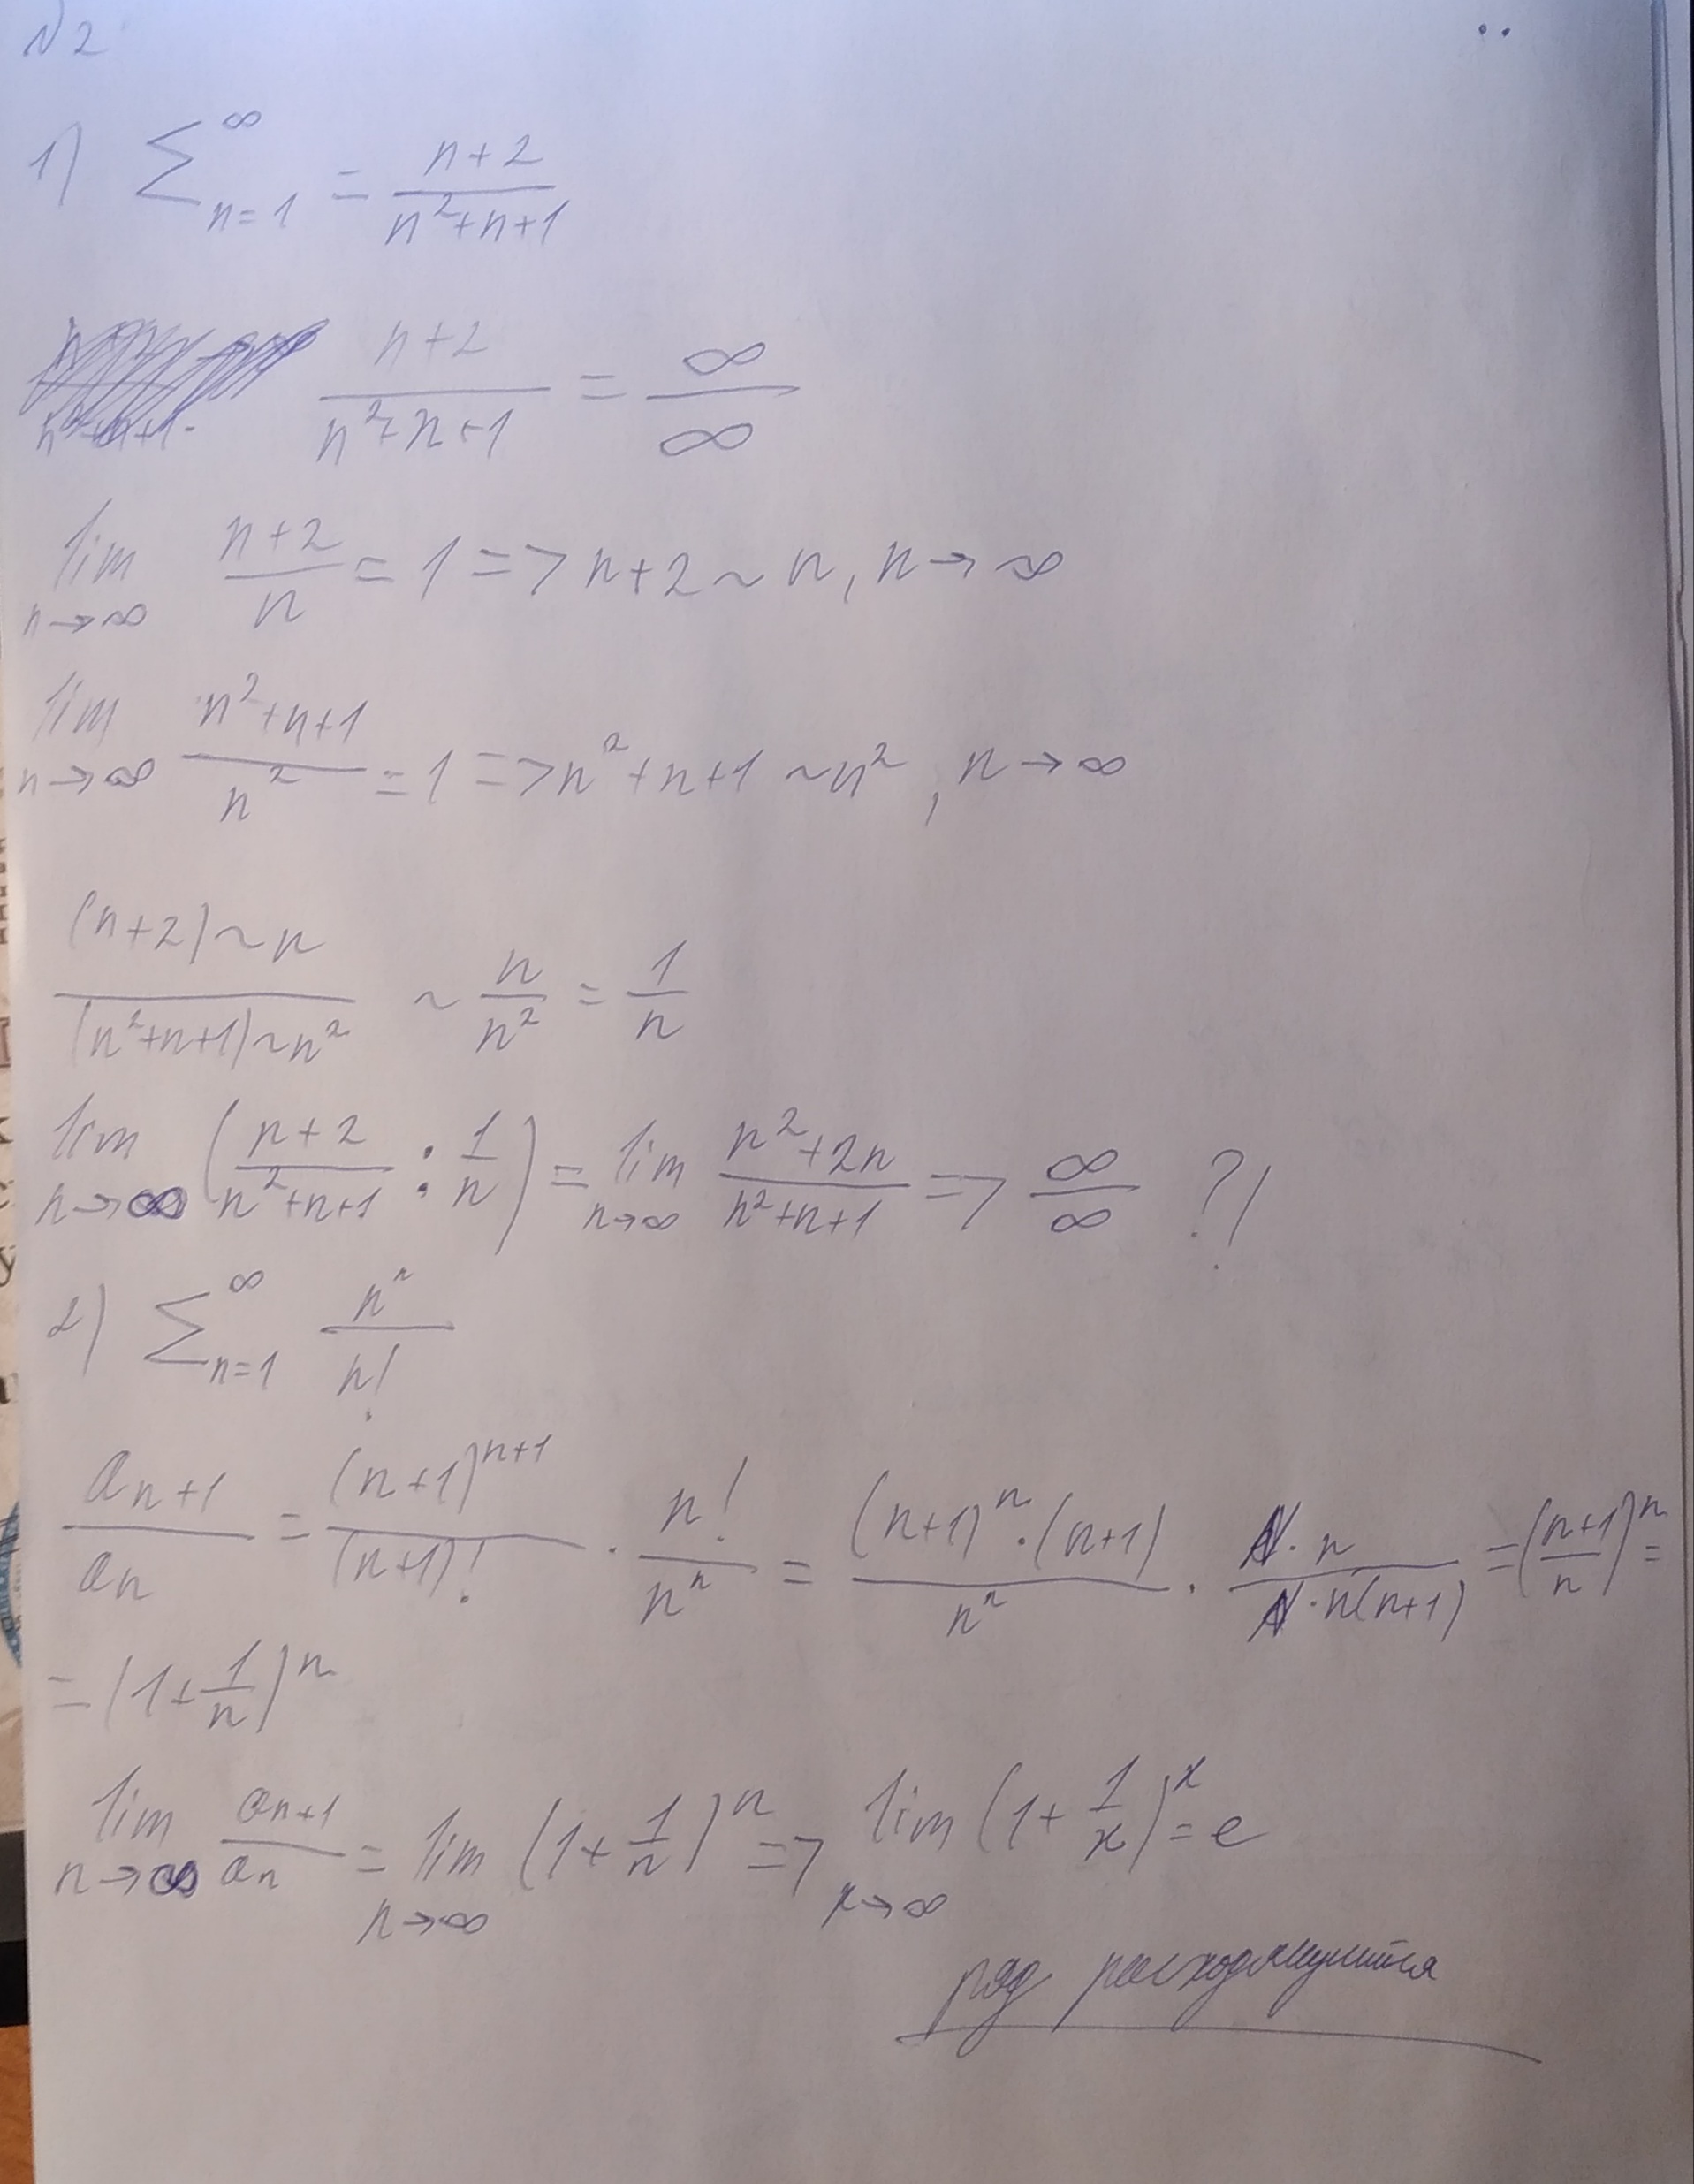 №2
1) ∑_{n=1}^{∞} = \frac{n+2}{n^2+n+1}
\frac{n+2}{n^2+n+1} = \frac{∞}{∞}
lim_{n→∞} \frac{n+2}{n} = 1 => n+2 ~ n, n→∞
lim_{n→∞} \frac{n^2+n+1}{n^2} = 1 => n^2+n+1 ~ n^2, n→∞
\frac{(n+2)~n}{(n^2+n+1)~n^2} ~ \frac{n}{n^2} = \frac{1}{n}
lim_{n→∞} (\frac{n+2}{n^2+n+1} : \frac{1}{n}) = lim_{n→∞} \frac{n^2+2n}{n^2+n+1} => \frac{∞}{∞} ?!
2) ∑_{n=1}^{∞} \frac{n^n}{n!}
\frac{a_{n+1}}{a_n} = \frac{(n+1)^{n+1}}{(n+1)!} · \frac{n!}{n^n} = \frac{(n+1)^n·(n+1)}{n^n} · \frac{1·n}{1·n(n+1)} = (\frac{n+1}{n})^n =
= (1+\frac{1}{n})^n
lim_{n→∞} \frac{a_{n+1}}{a_n} = lim_{n→∞} (1+\frac{1}{n})^n => lim_{x→∞} (1+\frac{1}{x})^x = e
ряд расходящийся